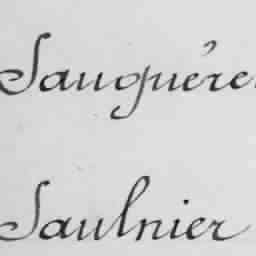 Sauguére
Saulnier